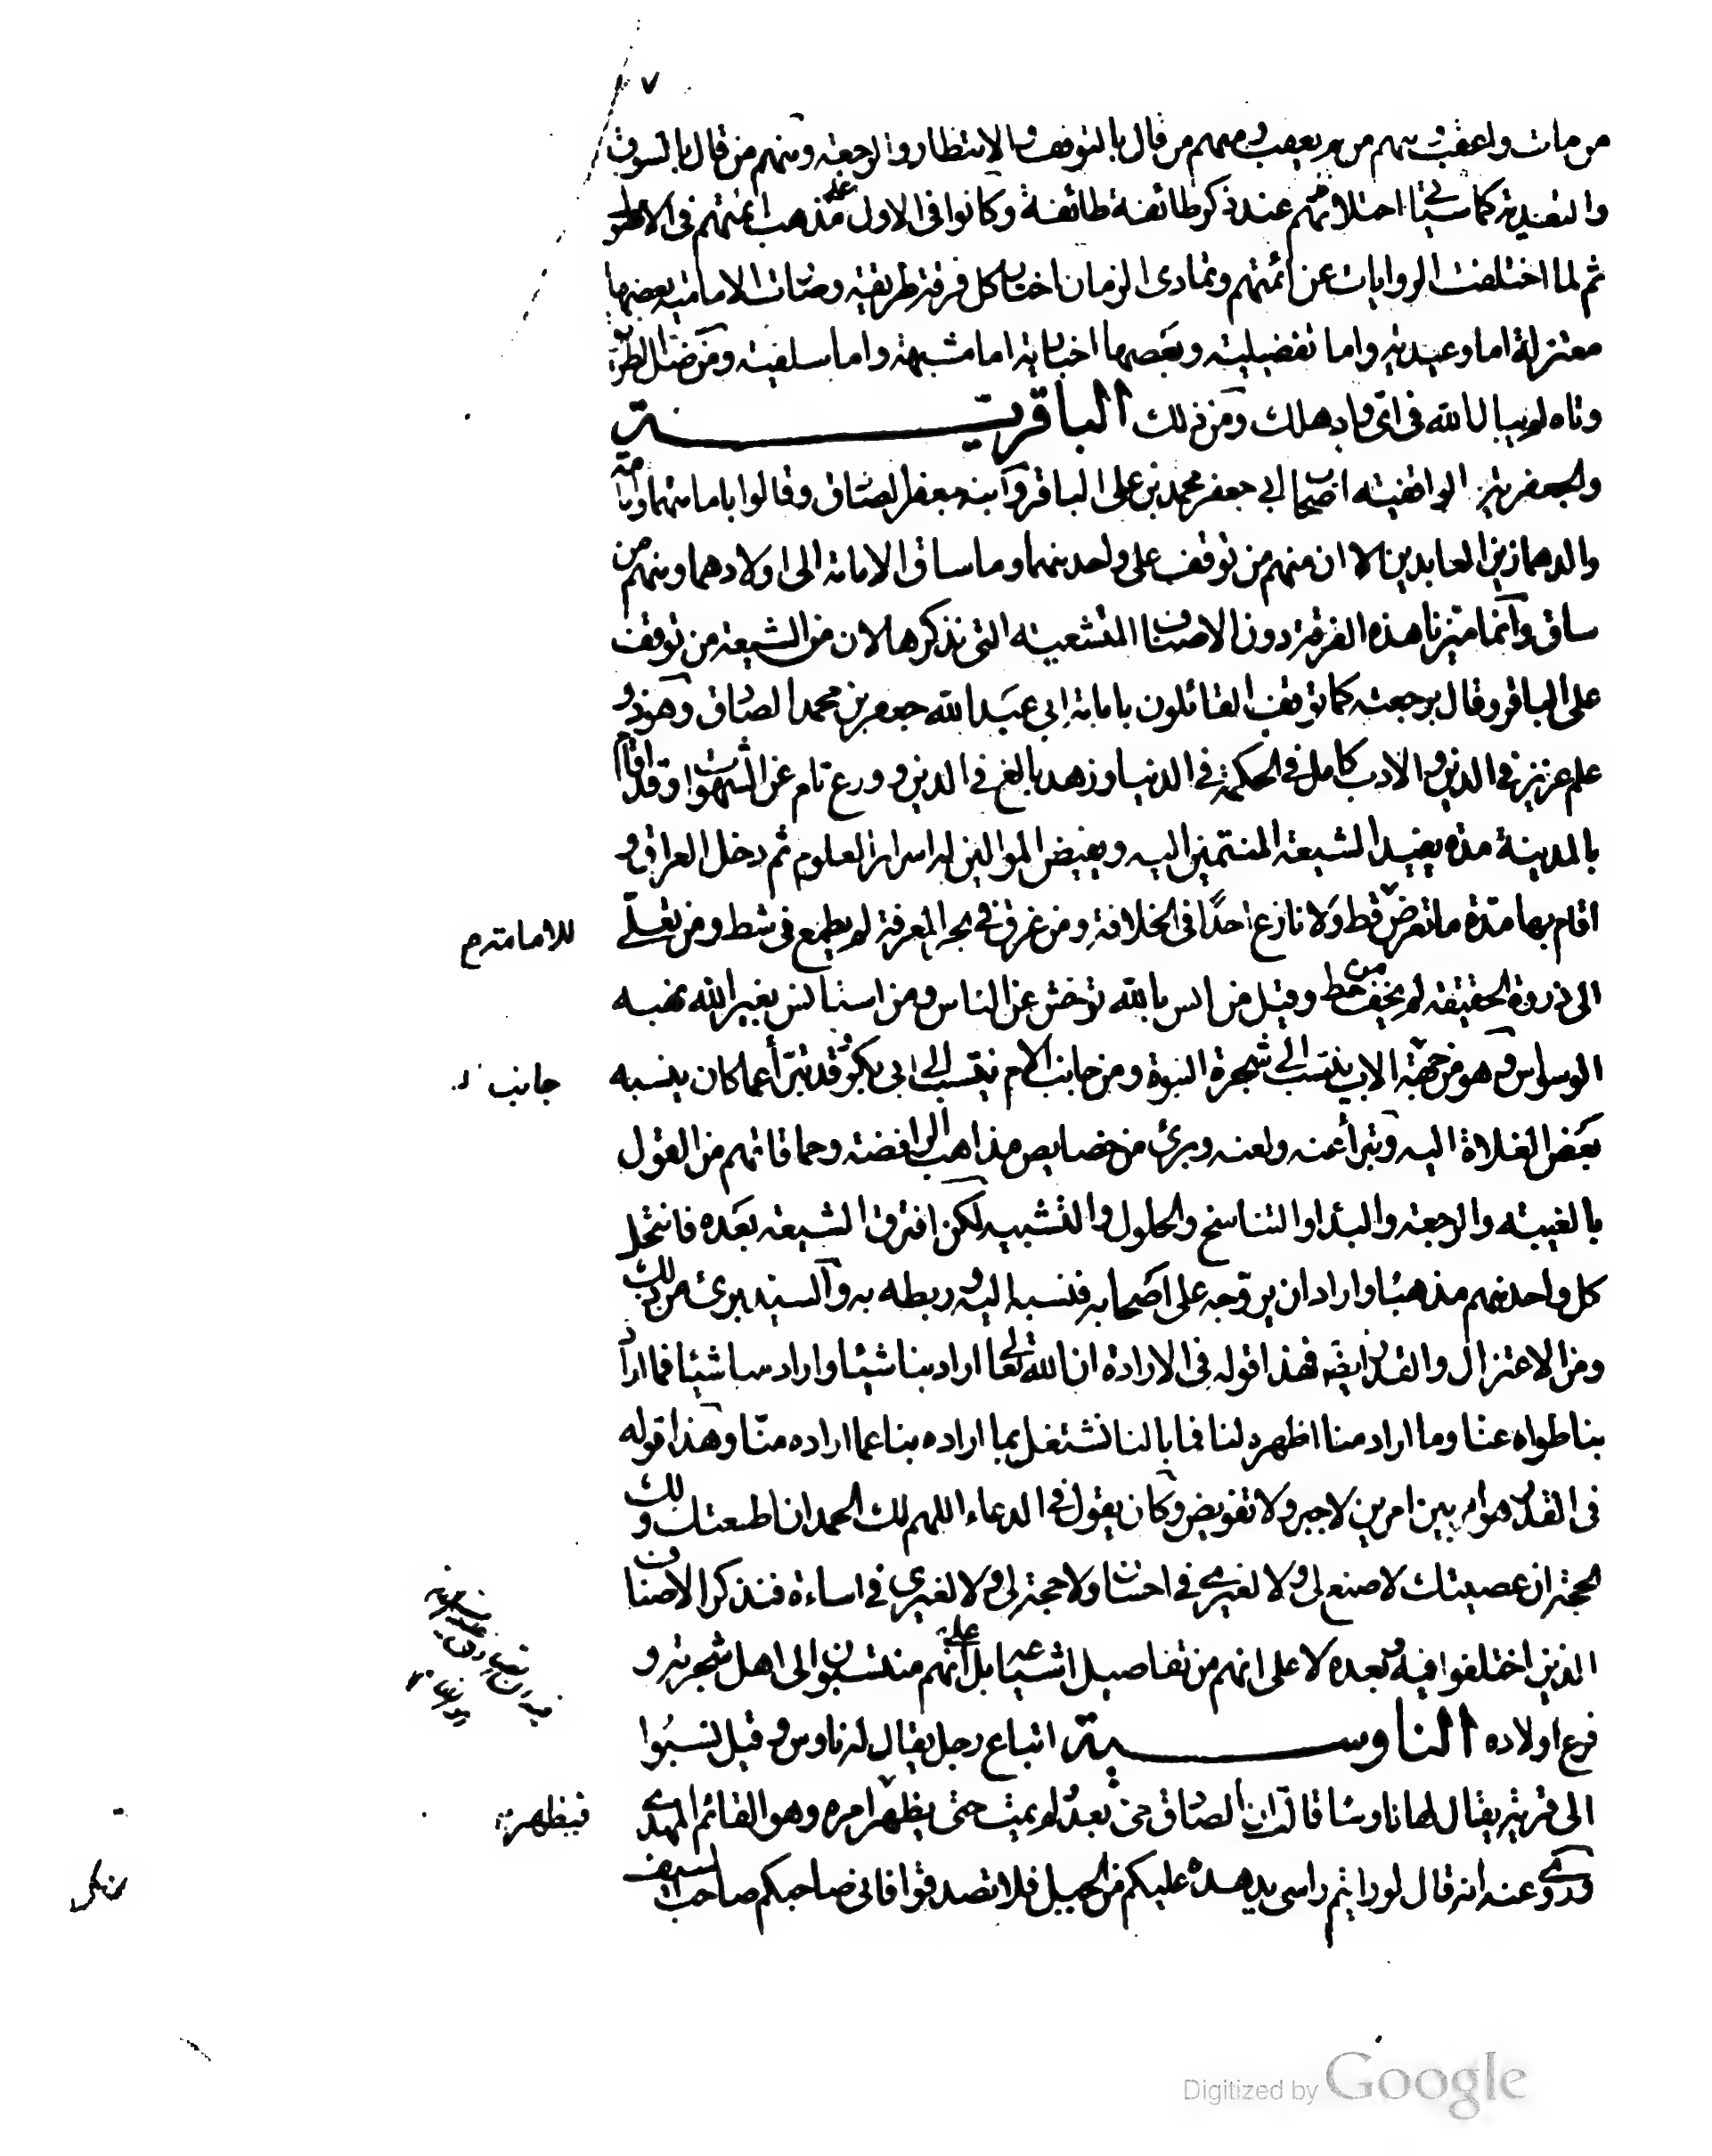 ٧
من مات واعقب ومنهم من لم يعقب ومنهم من قال بالتوقف والانتظار والرجعة ومنهم من قال بالسوق
والتعدية كما سيأتي اختلافاتهم عند ذكر طائفة طائفة وكانوا في الاول على مذهب ائمتهم في الاصول
ثم لما اختلفت الروايات عن ائمتهم وتمادى الزمان اختار كل فرقة طريقة وصارت الامامية بعضها
معتزلة اما وعيدية واما تفضيلية وبعضها اخبارية اما مشبهة واما سلفية ومن ضل الطريق
وتاه لم يبال الله في اي واد هلك ومن ذلك الباقرية
والجعفرية الواقفية اصحاب ابي جعفر محمد بن علي الباقر وابنه جعفر الصادق وقالوا بامامتهما وبامامة
والدهما زين العابدين الا ان منهم من توقف على واحد منهما وما ساق الامامة الى اولادهما ومنهم من
ساق وانما ميزنا هذه الفرقة دون الاصناف المتشعبة التي نذكرها لان من الشيعة من توقف
على الباقر وقال برجعته كما توقف القائلون بامامة ابي عبد الله جعفر بن محمد الصادق وهو ذو
علم عزيز في الدين والادب كامل في الحكمة في الدنيا وزهد بالغ في الدين وورع تام عن الشهوات وقد اقام
بالمدينة مدة يفيد الشيعة المنتمين اليه ويفيض الموالين له اسرار العلوم ثم دخل العراق و
اقام بها مدة ما تعرض قط ولا نازع احدًا في الخلافة ومن غرق في بحر المعرفة لم يطمع في شط ومن تعلى
للامامة م
الى ذروة الحقيقة لم يخف من حط وقيل من انس بالله توحش عن الناس ومن استانس بغير الله نهبه
الوسواس وهو من جهة الاب ينتسب الى شجرة النبوة ومن جانب الام ينتسب الى ابي بكر وقد تبرأ عما كان ينسبه
جانب
بعض الغلاة اليه وتبرأ عنه ولعنه وبرئ من خصايص مذاهب الرافضة وحماقاتهم من القول
بالغيبة والرجعة والبدا والتناسخ والحلول والتشبيه لكن افترق الشيعة بعده فانتحل
كل واحد منهم مذهبا واراد ان يروجه على اصحابه فنسبه اليه وربطه به والسيد برئ من ذلك
ومن الاعتزال والقدر ايضه فهذا قوله في الارادة ان الله تعالى اراد بنا شيئا واراد منا شيئا فما اراد
بنا طواه عنا وما اراد منا اظهره لنا فما بالنا نشتغل بما اراده بنا عما اراده منا وهذا قوله
في القدر هو امر بين امرين لا جبر ولا تفويض وكان يقول في الدعاء اللهم لك الحمد ان اطعتك ولك
الحجة ان عصيتك لا صنع لي ولا لغيري في احسان ولا حجة لي ولا لغيري في اساءة فنذكر الاصناف
الذين اختلفوا فيه وبعده لا على انهم من تفاصيل اشياعه بل على انهم منتسبون الى اهل شجرته و
فرع اولاده الناوسية اتباع رجل يقال له ناوس وقيل نسبوا
الى قرية يقال لها ناوسا قالت ان الصادق حي بعد لم يمت حتى يظهر امره وهو القائم المهدي
فيظهر
وروي عنه انه قال لو رايتم راسي يدهده عليكم من الجبل فلا تصدقوا فاني صاحبكم صاحب السيف
Digitized by Google